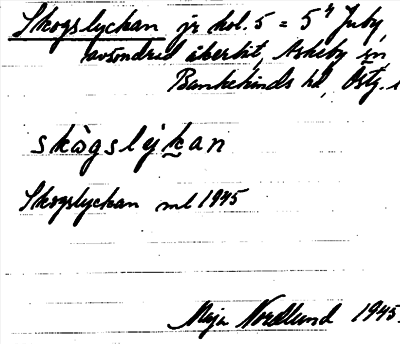 Skogslyckan jr kol. 5 = 5⁴ Juby,
avsöndrad åberkt, Askeby sn,
Bankekinds hd, Östg. l
skògslýkan
Skogslyckan ml 1945
Maja Nordlund 1945.